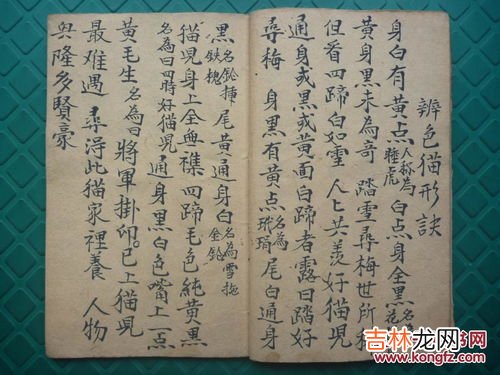 辨色猫形訣
身白有黄点人称為睡虎白点身全黒名
黄身黒未為奇 踏雪尋梅世所
但看四蹄白如雪 人人共羨好猫児
通身或黒或黄面白蹄者露曰踏好
尋梅 身黒有黄点名為玳瑁尾白通身
黒 尾黄通身白名為雪拖
猫児身上全無襍 四蹄毛色純黄黒
名為曰四時好猫児 通身黒白色嘴上一点
黄毛生名為曰將軍掛印。已上猫児
最難遇 尋淂此猫家裡養 人物
興隆多賢豪
吉林龙网
www.kongfz.com